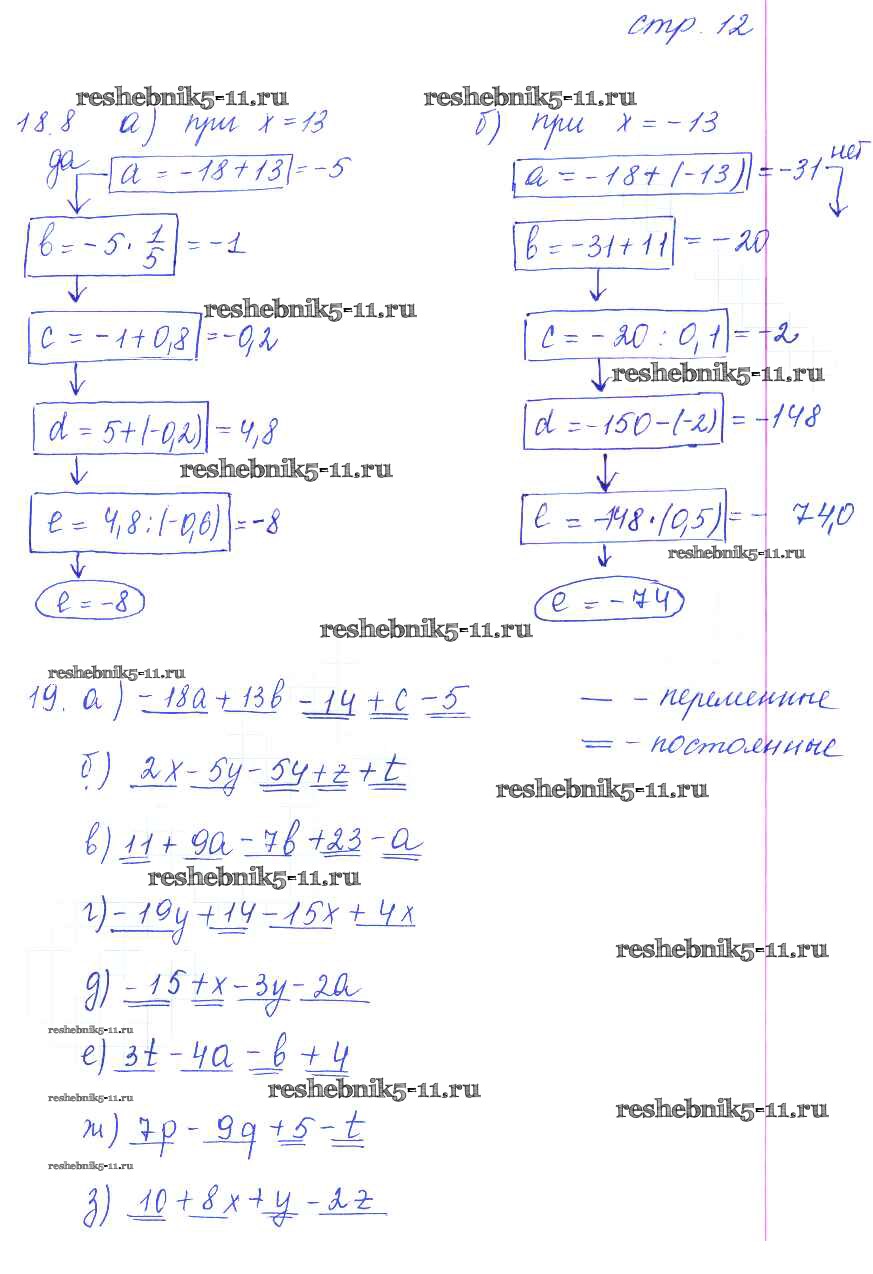 стр. 12
reshebnik5-11.ru reshebnik5-11.ru
18.8 а) при x = 13
да
a = -18 + 13 = -5
b = -5 · 1/5 = -1
reshebnik5-11.ru
c = -1 + 0,8 = -0,2
d = 5 + (-0,2) = 4,8
reshebnik5-11.ru
e = 4,8 : (-0,6) = -8
e = -8
б) при x = -13
a = -18 + (-13) = -31 нет
b = -31 + 11 = -20
c = -20 : 0,1 = -2
reshebnik5-11.ru
d = -150 - (-2) = -148
e = -148 · (0,5) = - 74,0
reshebnik5-11.ru
e = -74
reshebnik5-11.ru
reshebnik5-11.ru
19. а) -18a + 13b - 14 + c - 5
— - переменные
= - постоянные
б) 2x - 5y - 54 + z + t
reshebnik5-11.ru
в) 11 + 9a - 7b + 23 - a
reshebnik5-11.ru
г) -19y + 14 - 15x + 4x
reshebnik5-11.ru
д) -15 + x - 3y - 2a
reshebnik5-11.ru
е) 3t - 4a - b + 4
reshebnik5-11.ru
reshebnik5-11.ru
reshebnik5-11.ru
ж) 7p - 9q + 5 - t
reshebnik5-11.ru
з) 10 + 8x + y - 2z